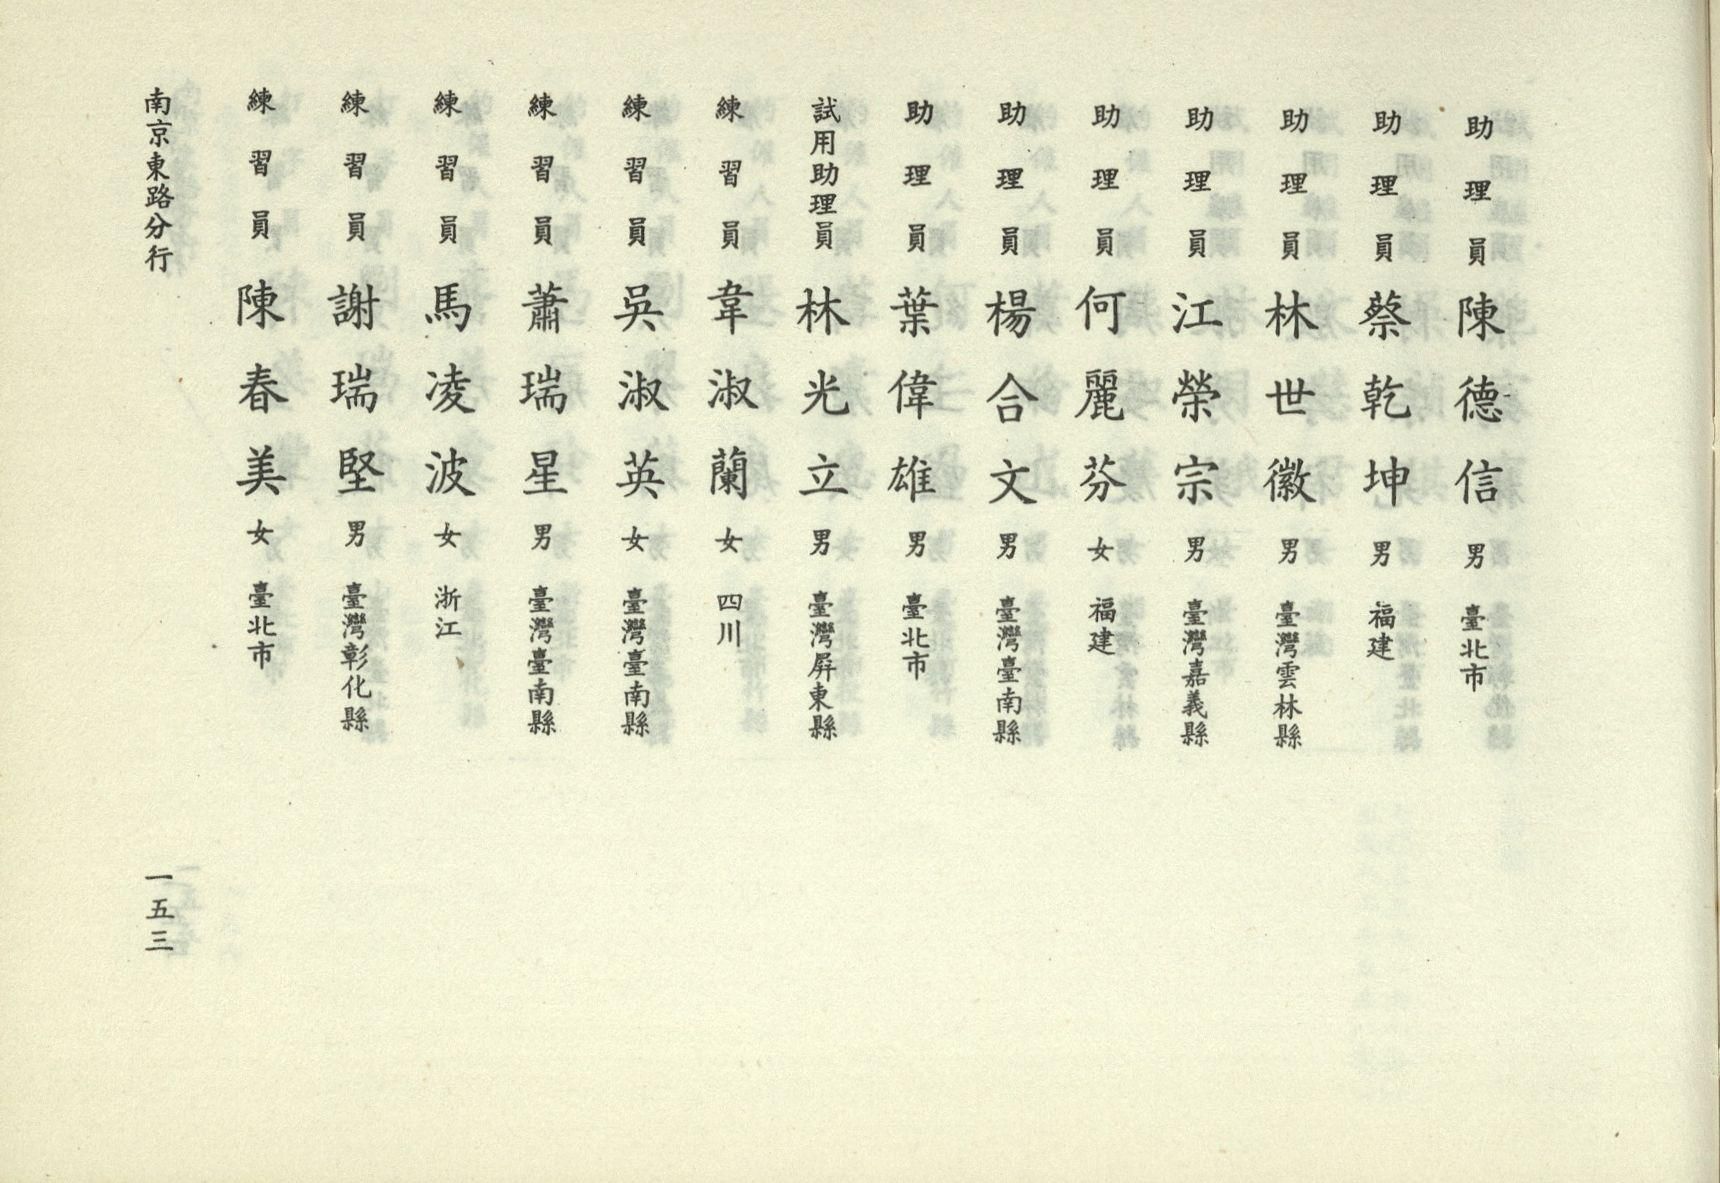 助理員 陳德信 男 臺北市
助理員 蔡乾坤 男 福建
助理員 林世徽 男 臺灣雲林縣
助理員 江榮宗 男 臺灣嘉義縣
助理員 何麗芬 女 福建
助理員 楊合文 男 臺灣臺南縣
助理員 葉偉雄 男 臺北市
試用助理員 林光立 男 臺灣屏東縣
練習員 韋淑蘭 女 四川
練習員 吳淑英 女 臺灣臺南縣
練習員 蕭瑞星 男 臺灣臺南縣
練習員 馬凌波 女 浙江
練習員 謝瑞堅 男 臺灣彰化縣
練習員 陳春美 女 臺北市
南京東路分行
一五三